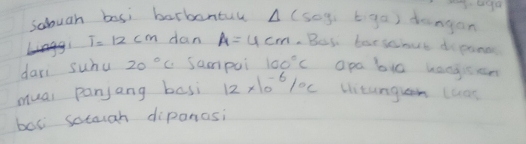 sebuah besi berbentuk Δ (segi tiga) dengan
T= 12 cm dan A= 4 cm. Besi tersebut dipanas
dari suhu 20 °c sampai 100°c apa bila
muai panjang besi 12 x10⁻⁶/°c Hitunglah Luas
besi setelah dipanasi